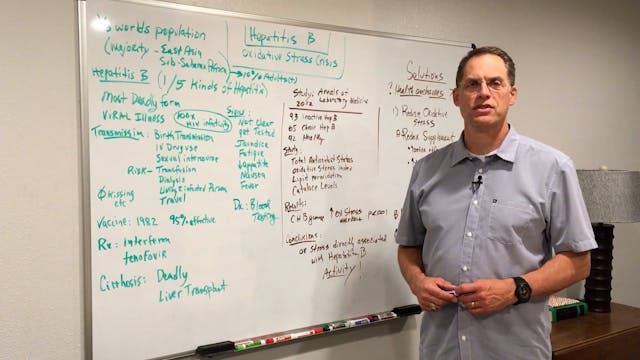 worlds population
(majority - East Asia
Sub-Saharan Africa
→ 10% Adults
Hepatitis B (1/5 Kinds of Hepatitis)
Most Deadly form
Viral Illness
100x HIV infectivity
Transmission: Birth Transmission
IV Druguse
Sexual intercourse
Risk - Transfusion
Dialysis
Living c Infected Person
Travel
Ø Kissing
etc
Vaccine: 1982 95% effective
Rx: interferm
tenofovir
Cirrhosis: Deadly
Liver Transplant
Signs:
Not clear
get Tested
Jaundice
Fatigue
↓appetite
Nausea
Fever
Dx: Blood
Testing
Hepatitis B
Oxidative Stress Crisis
Study: Annals of
2012 Laboratory Medicine
93 inactive Hep B
65 Chronic Hep B
92 Healthy
Study:
Total Antioxidant Status
Oxidative Stress index
Lipid peroxidation
Catalase Levels
Results:
CHB group ↑ ox Stress p<0.001
Conclusions:
ox Stress directly associated
with Hepatitis B
Activity!
Solutions
? Health exchanges ?
1) Reduce Oxidative
Stress
2) Redox Supplement